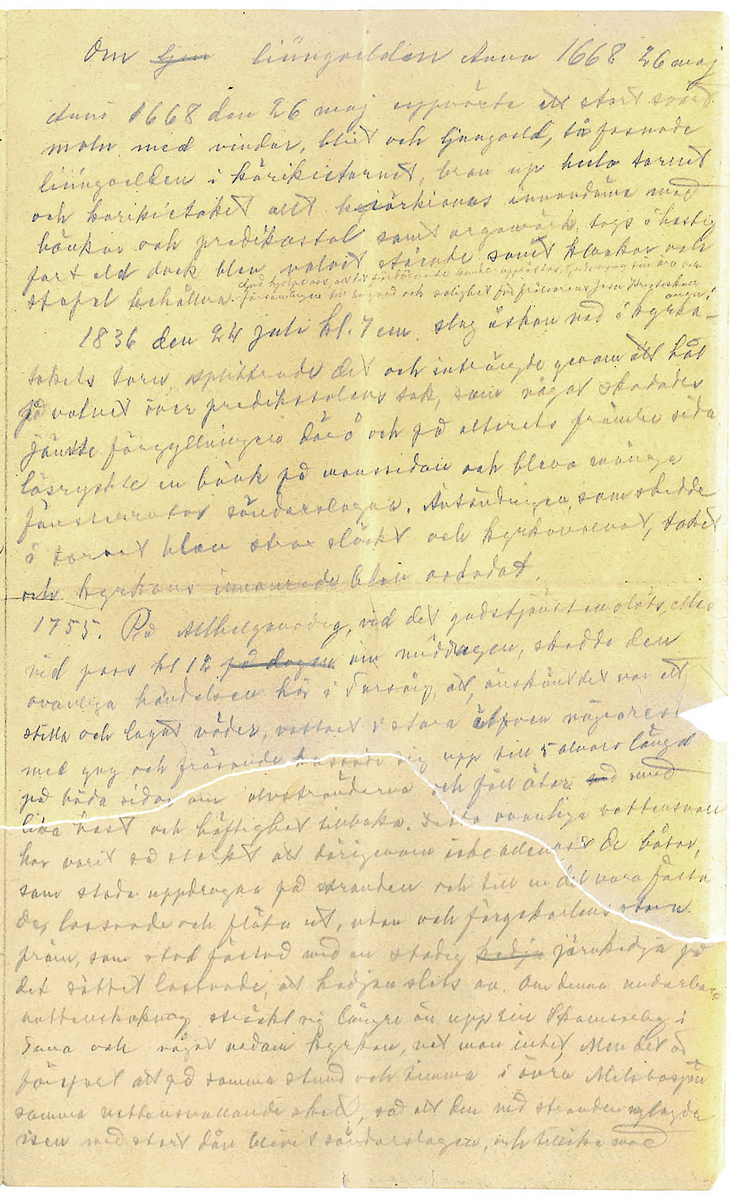 Om ljungoelden Anno 1668 26 maj
Anno 1668 den 26 maj uppvärte ett stort svart
moln med vindar, blixt och ljungoeld, då fasnade
liüngoelden i körikietornet, bran up hela tornet
och körikietaket allt kiörkionas innandöme med
bänkar och predikostol samt orgowärk, togs i hastig
fart eld dock blev valvet stående samt klockor och
stapel behållna.
1836 den 24 juli kl. 7 em. slog åskan ned i kyrka-
takets torn, splittrade det och inträngde genom ett hål
på valvet över predikstolens tak, som något skadades
jämte förgyllningen därå och på altarets främre sida
lösryckte en bänk på manssidan och bleva många
fönsterrutor sönderslagna. Antändningen som skedde
å tornet blev strax släckt och kyrkovalvet, taket
och kyrkans innanrede blev oskadat.
1755. På Allhelgonadag, vid det gudstjänsten slöts eller
vid pass kl 12 på dagen om middagen, skedde den
ovanliga händelsen här i Torsång, att, änskönt det var ett
stilla och lugnt väder, vattnet i stora älfven
med gny och fräsande kastade sig upp till 5 alnars längd
på båda sidor om älvstränderna och föll åter med
lika hast och häftighet tillbaka. Detta ovanliga vattensvall
har varit så starkt att därigenom de båtar,
som stodo uppdragna på stranden och till en del vara fästa
de, lossnade och flöto ut, utan och färgkarlens stora
pråm, som stod fästad med en stadig kedja järnkedja på
det sättet lossnade, att kedjan slets av. Om denna underbara
vattenskakning sträckt sig längre än upp till
Tuna och något nedom kyrkan, vet man intet. Men det är
försport att på samma stund och timma i övra Milsbosjön
samma vattensvallande skett, så att den vid stranden nylagda
isen med stort dån blivit sönderslagen, och tillika med